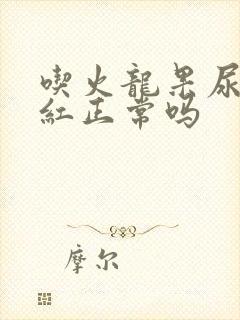 喫火龍果尿
紅正常吗
摩尔